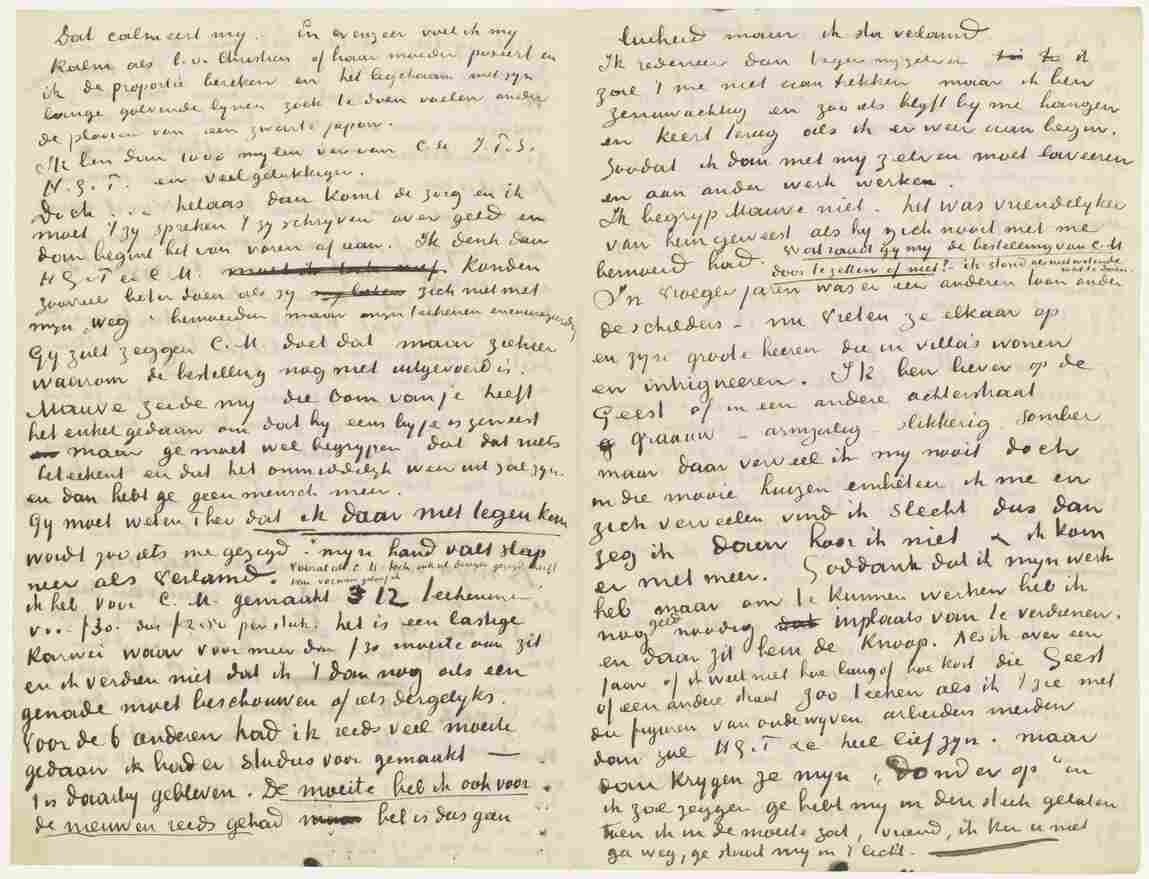 Dat calmeert my. En evenzeer voel ik my
kalm als b.v. Christien of haar moeder poseert en
ik de proportie bereken en het ligchaam met zyn
lange golvende lynen zoek te doen voelen onder
de plooien van een zwarte japon.
Ik ben dan 1000 mylen ver van C.M. J.P.S.
H.G.T. en veel gelukkiger.
Doch helaas dan komt de zorg en ik
moet 't zy spreken 't zy schryven over geld en
dan begint het van voren af aan. Ik denk dan
H.G.T en C.M. konden
zooveel beter doen als zy zich niet met
myn „weg” bemoeiden maar myn teekenen encourageerden
Gy zult zeggen C.M. doet dat maar ziehier
waarom de bestelling nog niet uitgevoerd is.
Mauve zeide my die Oom van je heeft
het enkel gedaan om dat hy eens by je is geweest
maar ge moet wel begrypen dat dat niets
beteekent en dat het onmiddelyk weer uit zal zyn
en dan hebt ge geen mensch meer.
Gy moet weten Theo dat ik daar niet tegen kan
wordt zoo iets me gezegd – myn hand valt slap
neer als verlamd. Vooral als C.M. toch ook al dingen gezegd heeft
van
ik heb voor C.M. gemaakt 12 teekeningen
voor f30. dus f2.50 per stuk. het is een lastige
karwei waar voor meer dan f30 moeite aan zit
en ik verdien niet dat ik 't dan nog als een
genade moet beschouwen of iets dergelyks.
Voor de 6 anderen had ik reeds veel moeite
gedaan ik had er studies voor gemaakt –
't is daarby gebleven. De moeite heb ik ook voor
de nieuwen reeds gehad het is dus geen
luiheid maar ik sta verlamd
Ik redeneer dan tegen myzelven ik
zal 't me niet aantrekken maar ik ben
zenuwachtig en zoo iets blyft by me hangen
en keert terug als ik er weer aan begin.
Zoodat ik dan met my zelven moet laveeren
en aan ander werk werken.
Ik begryp Mauve niet. het was vriendelyker
van hem geweest als hy zich nooit met me
bemoeid had. Wat raadt gy my de bestelling van C.M.
door te zetten of niet? – ik weet wat te doen.
In vroeger jaren was er een anderen toon onder
de schilders – nu vreten ze elkaar op
en zyn groote heeren die in villa's wonen
en intrigueeren. Ik ben liever op de
Geest of in een andere achterstraat
graauw – armzalig – slikkerig somber
maar daar verveel ik my nooit doch
in die mooie huizen embêteer ik me en
zich vervelen vind ik slecht dus dan
zeg ik daar hoor ik niet & ik kom
er niet meer. Goddank dat ik myn werk
heb maar om te kunnen werken heb ik
nog geld noodig inplaats van te verdienen.
en daar zit hem de knoop. Als ik over een
jaar of ik weet niet hoe lang of hoe kort die Geest
of een andere straat zoo teeken als ik 't zie met
die figuren van oude wyven arbeiders meiden
dan zal H.G.T &c heel lief zyn. maar
dan krygen ze myn „donder op” en
ik zal zeggen ge hebt my in den steek gelaten
toen ik in de moeite zat, vriend, ik ken u niet
ga weg, ge staat my in 't licht.